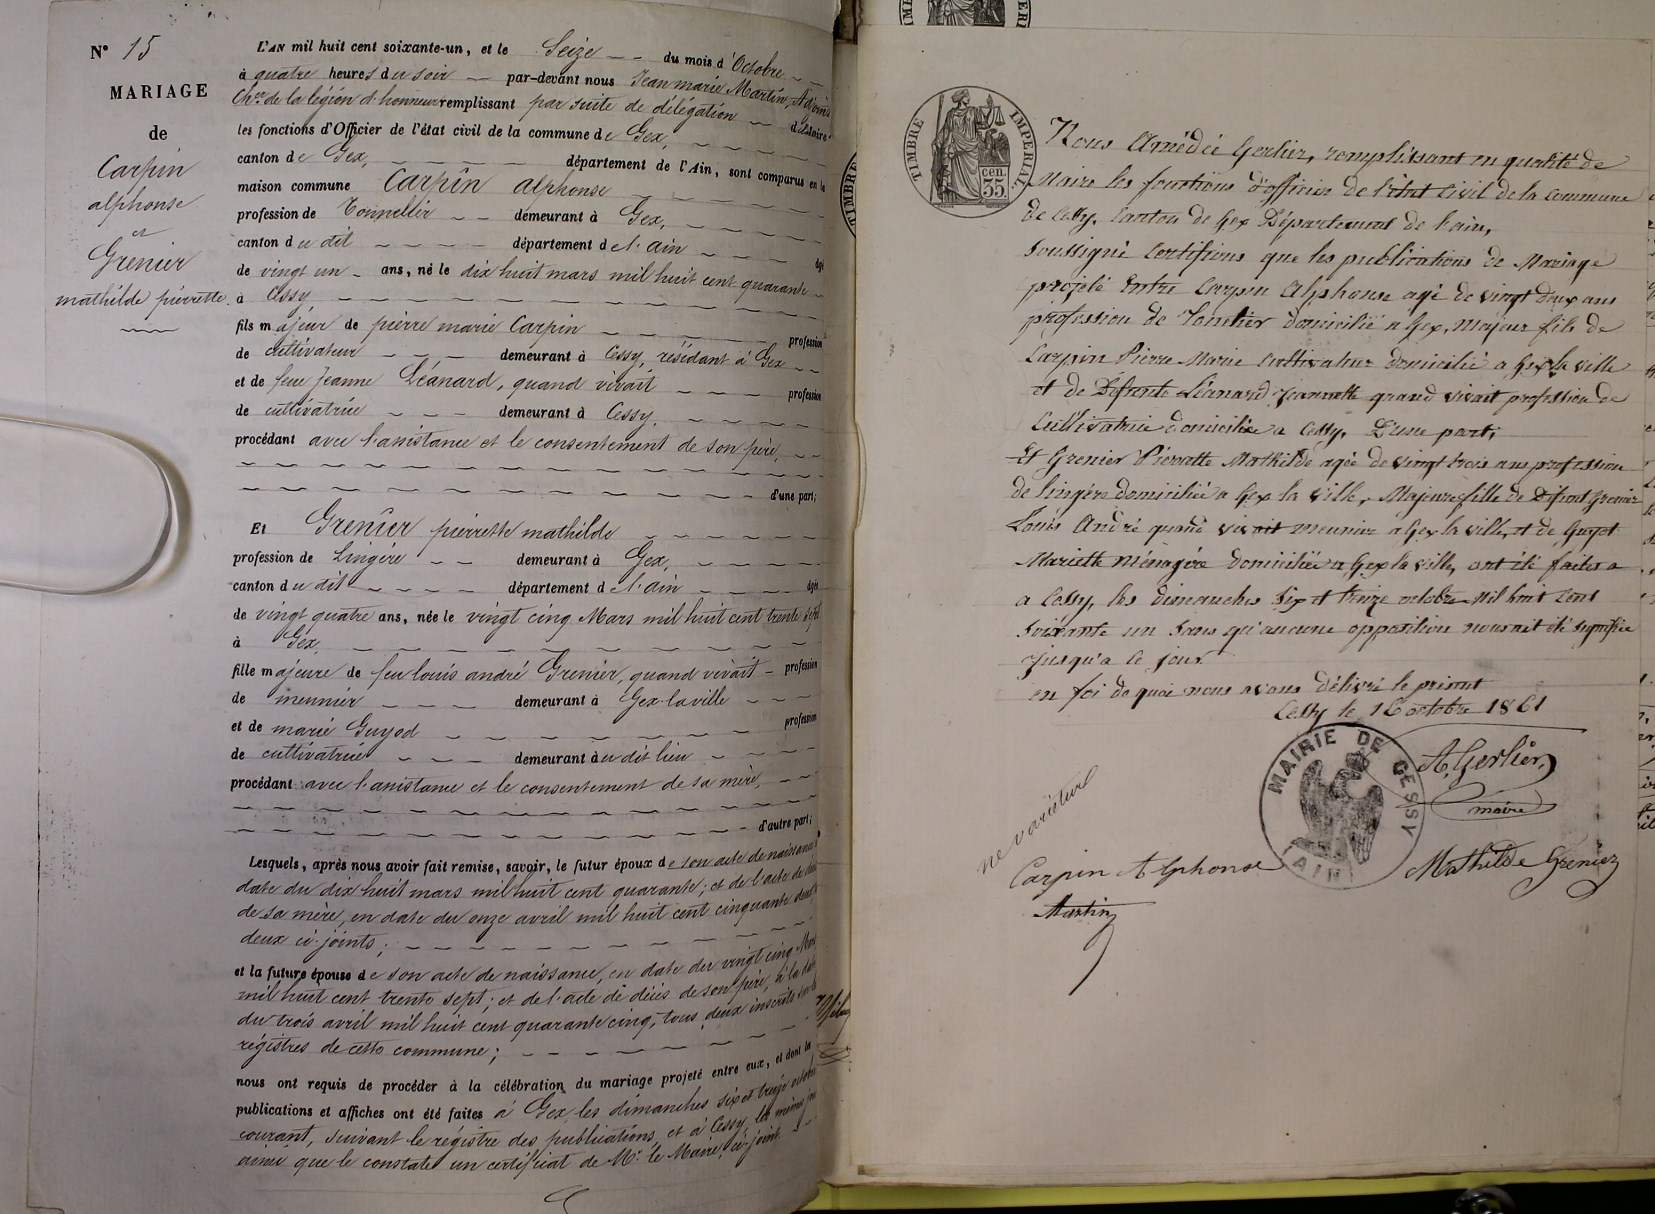 N° 15
MARIAGE
de
Carpin
alphonse
et
Grenier
mathilde pierrette.
L'AN mil huit cent soixante-un, et le Seize du mois d'Octobre
à quatre heures du soir par-devant nous Jean marie Martin, Adjoint
Cher de la légion d'honneur remplissant par suite de délégation du Maire
les fonctions d'Officier de l'état civil de la commune de Gex,
canton de Gex, département de l'Ain, sont comparus en la
maison commune Carpin alphonse
profession de Tonnellier demeurant à Gex,
canton du dit département de l'ain âgé
de vingt un ans, né le dix huit mars mil huit cent quarante
à Cessy
fils majeur de pierre marie Carpin profession
de cultivateur demeurant à Cessy, résidant à Gex
et de feue Jeanne Léanard, quand vivait profession
de cultivatrice demeurant à Cessy.
procédant avec l'assistance et le consentement de son père,
d'une part;
Et Grenier pierrette mathilde
profession de Lingère demeurant à Gex,
canton du dit département de l'ain âgée
de vingt quatre ans, née le vingt cinq Mars mil huit cent trente sept
à Gex,
fille majeure de feu louis andré Grenier, quand vivait profession
de meunier demeurant à Gex-la ville
et de marie Guyod profession
de cultivatrice demeurant au dit lieu
procédant avec l'assistance et le consentement de sa mère,
d'autre part;
Lesquels, après nous avoir fait remise, savoir, le futur époux de son acte de naissance
date du dix huit mars mil huit cent quarante; et de l'acte de
de sa mère, en date du onze avril mil huit cent cinquante
deux ci-joints;
et la future épouse de son acte de naissance, en date du vingt cinq Mars
mil huit cent trente sept; et de l'acte de décès de son père, à la date
du trois avril mil huit cent quarante cinq, tous deux inscrits sur les
régistres de cette commune;
nous ont requis de procéder à la célébration du mariage projeté entre eux, et dont la
publications et affiches ont été faites à Gex les dimanches six et treize octobre
courant, suivant le régistre des publications, et à Cessy les mêmes jours
ainsi que le constate un certificat de Mr. le Maire, ci-joint
TIMBRE IMPERIAL
35 cen.
Nous Amédée Gerlier, remplissant en qualité de
Maire les fonctions d'officier de l'état civil de la commune
de Cessy, Canton de Gex Département de l'ain,
soussigné Certifions que les publications de Mariage
projeté Entre Carpin Alphonse agé de vingt deux ans
profession de Tonelier domicilié a Gex, Majeur fils de
Carpin Pierre Marie Cultivateur domicilié a Gex la ville
et de Défunte Léanard Jeannette quand vivait profession de
Cultivatrice domiciliée a Cessy, D'une part;
Et Grenier Pierrette Mathilde agée de vingt trois ans profession
de lingère domiciliée a Gex la ville, Majeure fille de Défunt Grenier
Louis André quand vivait meunier a Gex la ville, et de Guyot
Mariette Ménagère domiciliée a Gex la ville, ont été faites a
a Cessy, les dimanches six et treize octobre Mil huit Cent
soixante un sans qu'aucune opposition nous ait été signifiée
jusqu'a ce jour
en foi de quoi nous avons délivré le présent
Cessy le 16 octobre 1861
A. Gerlier
maire
MAIRIE DE CESSY
(AIN)
ne varietur
Carpin Alphonse
Mathilde Grenier
Martin